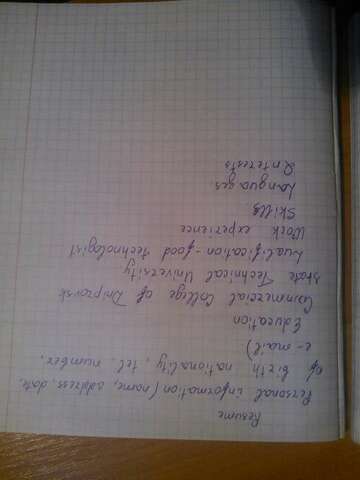 Resume
Personal information (name, address, date
of birth, nationality, tel. number,
e-mail)
Education
Commercial College of Dniprovsk
State Technical University
Lualification - food technologist
Work experience
Skills
Languages.
Interests